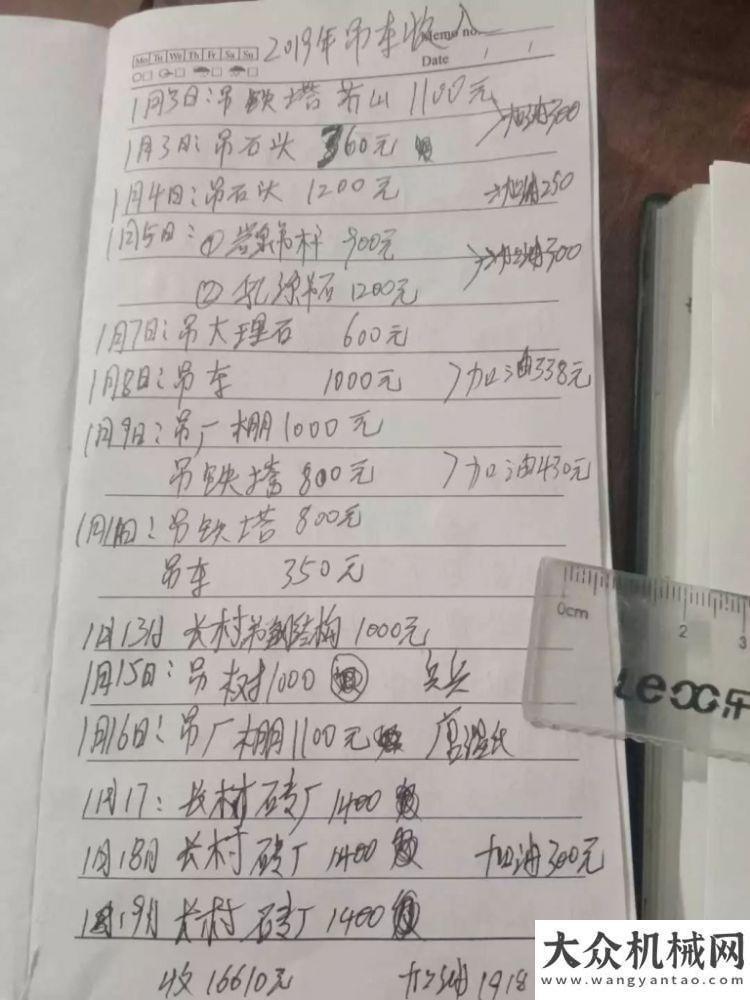 2019年吊车收入
Memo no.
Mo Tu We Th Fr Sa Su
Date / /
1月3日:吊铁塔 若山 1100元
1月3日:吊石头 360元 加油300
1月4日:吊石头 1200元 加油250
1月5日:① 吊杆 900元 加油300
② 吊石 1200元
1月7日:吊大理石 600元
1月8日:吊车 1000元 加油338元
1月9日:吊厂棚1000元
吊铁塔 800元 加油430元
吊铁塔 800元
吊车 350元
1月13日 长村吊钢结构 1000元
1月15日:吊树1000
1月16日:吊厂棚1100元
1月17:长村砖厂1400
1月18日 长村砖厂1400 加油300元
1月19日 长村砖厂1400
收16610元 加油1918
0cm 2 3
大众机械网
www.wangyantao.com